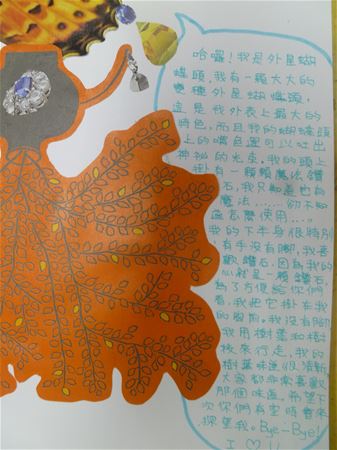 哈囉！我是外星蝴
蝶頭，我有一顆大大的
變種外星蝴蝶頭，
這是我外表上最大的
特色，而且我的蝴蝶頭
上的嘴邑還可以吐出
神祕的光束。我的頭上
掛有一顆顆魔法鑽
石，我只知道也有
魔法......卻不知
道怎麼使用...。
我的下半身很特別
有手沒有腳，我喜
歡鑽石，因為我的
心就是一顆鑽石，
為了方便給你們
看，我把它掛在我
的胸前。我沒有腳
我用樹葉和樹
枝來行走，我的
樹葉味道很清新
大家都非常喜歡
那個味道。希望下
次你們有空時會來
探望我。Bye-Bye!
I ♡ U